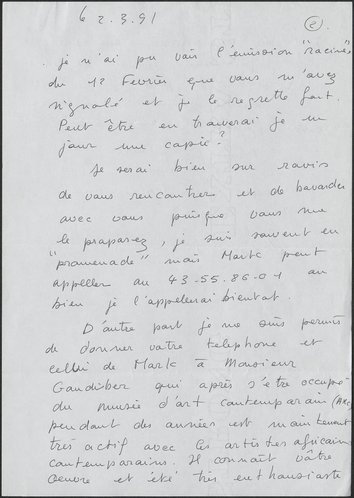 6 2.3.91
②
je n'ai pu voir l'émission "racines"
du 12 Fevrier que vous m'avez
signalé et je le regrette fort.
Peut être en trouverai je un
jour une copie?
Je serai bien sur ravis
de vous rencontrer et de bavarder
avec vous puisque vous me
le proposez, je suis souvent en
"promenade" mais Mark peut
appeller au 43-55.86-01 ou
bien je l'appellerai bientot.
D'autre part je me suis permis
de donner votre telephone et
cellui de Mark à Monsieur
Gaudibert qui après s'etre occupé
du musée d'art contemporain
pendant des années est maintenant
très actif avec les artistes africains
contemporains. Il connait vôtre
oeuvre et été très enthousiaste